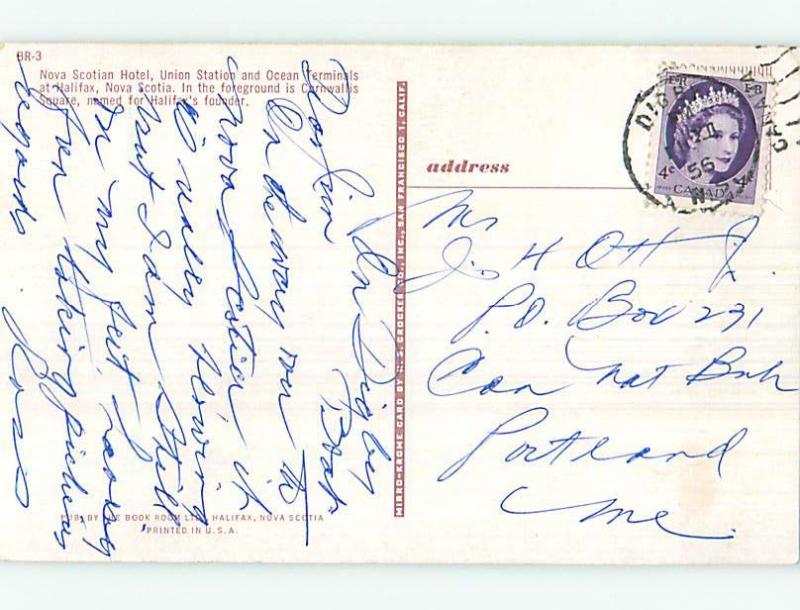 BR-3
Nova Scotian Hotel, Union Station and Ocean Terminals
at Halifax, Nova Scotia. In the foreground is Cornwallis
Square, named for Halifax's founder.
On Digby Boat
Dear Jim
On the way over to
Nova Scotia it
is really blowing
but I am still
on my feet
fun taking pictures
regards
Ross
PUB. BY THE BOOK ROOM LTD., HALIFAX, NOVA SCOTIA
PRINTED IN U.S.A.
MIRRO-KROME CARD BY H. S. CROCKER CO., INC., SAN FRANCISCO 1, CALIF.
address
Mr
J. H Ott Jr.
P.O. Box 231
Can Nat Bnk
Portland
Me.
DIGBY
XII
56
N.S.
CANADA
E R
4c 4c
CANADA